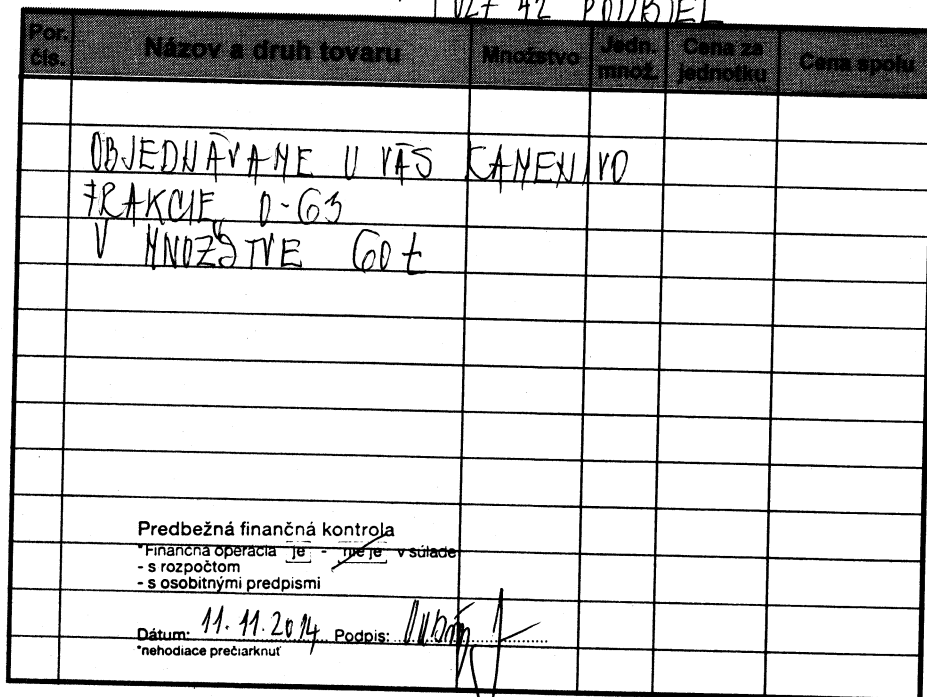 027 42 PODBIEL
Por. čís. Názov a druh tovaru Množstvo Jedn. množ. Cena za jednotku Cena spolu
OBJEDNÁVAME U VÁS KAMENIVO
FRAKCIE 0-63
V MNOŽSTVE 60 t
Predbežná finančná kontrola
*Finančná operácia je - nie je v súlade
- s rozpočtom
- s osobitnými predpismi
Dátum: 11.11.2014 Podpis:
*nehodiace prečiarknuť